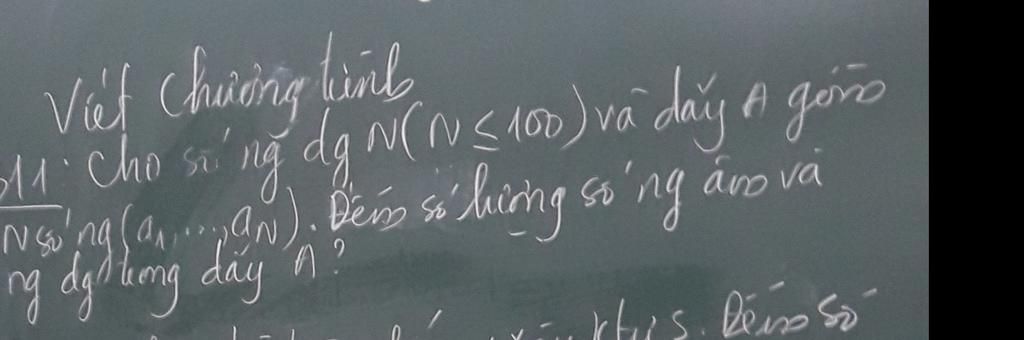 Viết chương trình
B11: Cho số ng dg N(N ≤ 100) và dãy A gồm
N số ng (a1, ..., aN). Đếm số lượng số ng âm và
ng dg trong dãy A?
Đếm số